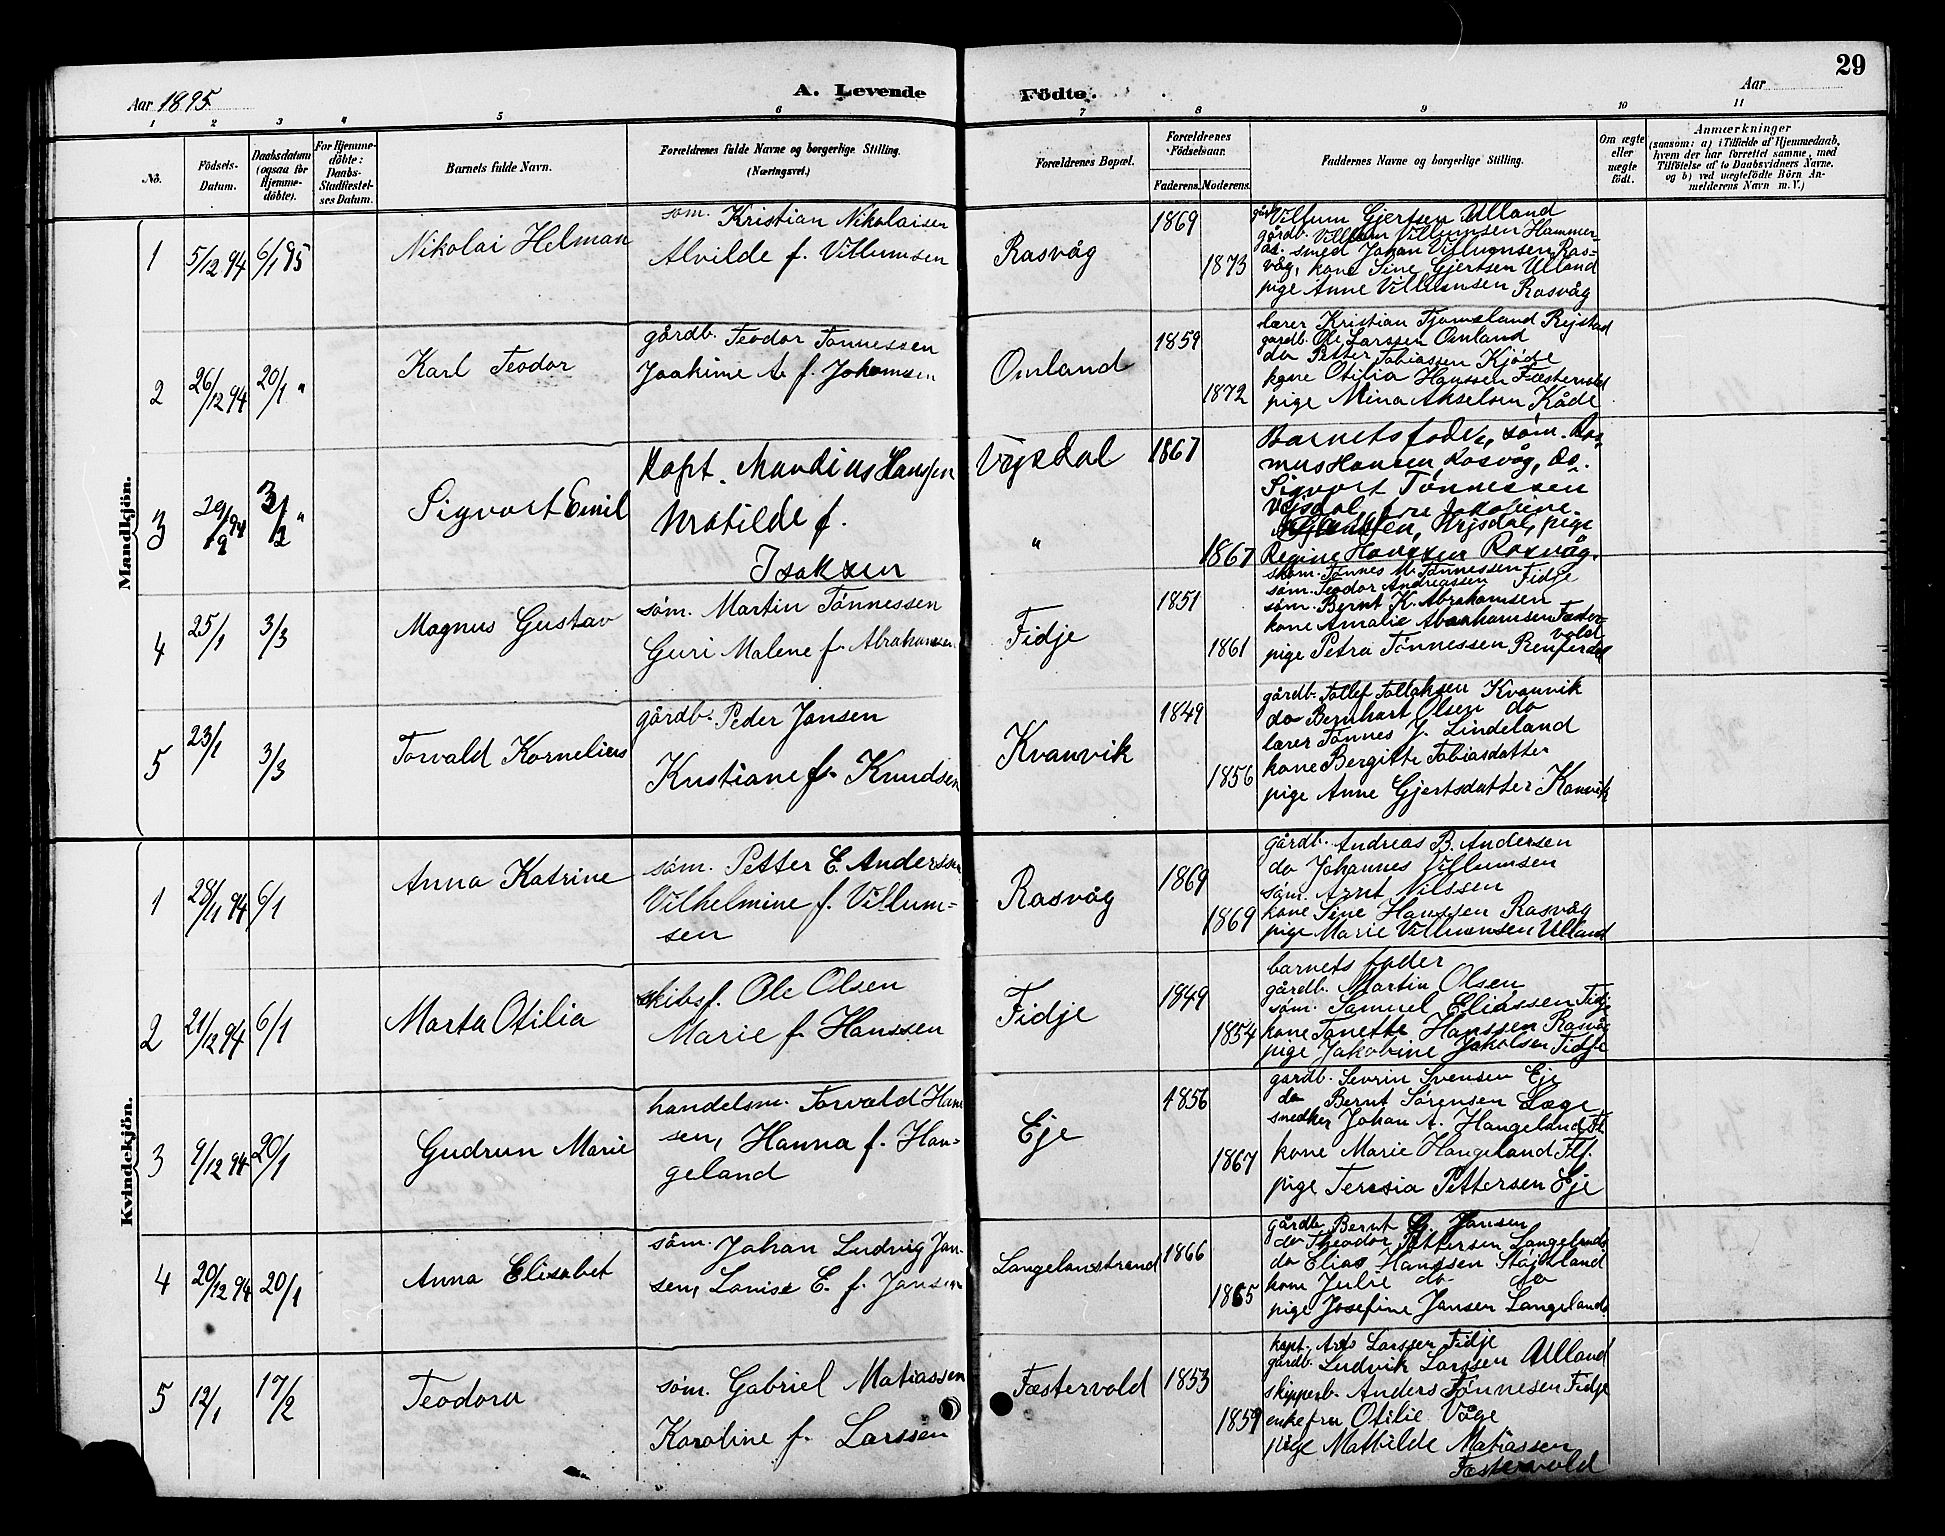 29
Aar 1895.
A. Levende Födte.
Aar
1 2 3 4 5 6 7 8 9 10 11
No.
Födsels-Datum.
Daabsdatum (ogsaa for Hjemmedöbte).
For Hjemmedöbte: Daabs-Stadfæstelses Datum.
Barnets fulde Navn.
Forældrenes fulde Navne og borgerlige Stilling. (Næringsvei.)
Forældrenes Bopæl.
Forældrenes Födselsaar.
Faderens. Moderens.
Faddernes Navne og borgerlige Stilling.
Om ægte eller uægte födt.
Anmærkninger
(saasom: a) i Tilfælde af Hjemmedaab,
hvem der har forrettet samme, med
Tilföielse af to Daabsvidners Navne.
og b) ved uægtefödte Börn Anmelderens Navn m. V.)
Mandkjön.
1 5/12 94 6/1 95 Nikolai Helman
söm. Kristian Nikolaisen
Alvilde f. Villumsen
Rasvåg 1869 1873
gårdb. Villum Gjertsen Ulland
gårdb. Villum Villumsen Hammer-
ås. smed Johan Villumsen Ras-
våg, kone Sine Gjertsen Ulland
pige Anne Villumsen Rasvåg
2 26/12 94 20/1 " Karl Teodor
gårdb. Teodor Tönnessen
Joakime A. f. Johannsen
Omland 1859 1872
lærer Kristian Tjomsland Rejstad
gardb. Ole Larssen Omland
do Petter Tobiassen Kjöde
kone Otilia Hanssen Fæstervold
pige Mina Akselsen Kåde
3 29/12 94 3/2 " Sigvart Emil
Kapt. Mandius Hanssen
Matilde f.
Isaksen
Vejsdal 1867 " 1867
Barnets fader, söm. Ras-
mus Hansen, Rasvåg, do.
Sigvart Tönnessen
Vejsdal, fru Jakobine
Vejsdal, pige
Regine Hanssen Rasvåg.
4 25/1 3/3 Magnus Gustav
söm. Martin Tönnessen
Guri Malene f. Abrahamsen
Fidje 1851 1861
skom. Tönnes M. Tönnessen
söm. Teodor Andreassen Fidje
söm. Bernt K. Abrahamsen
kone Amalie Abrahamsen Fæster-
vold
pige Petra Tönnessen
5 23/1 3/3 Torvald Kornelius
gårdb. Peder Jansen
Kristiane f. Knudsen
Kvanvik 1849 1856
gårdb. Tollef Tollaksen Kvanvik
do Bernhart Olsen do
lærer Tönnes J. Lindeland
kone Bergitte Tobiasdatter
pige Anne Gjertsdatter Kanvik
Kvindekjön.
1 28/11 94 6/1 Anna Katrine
söm. Petter E. Anderssen
Vilhelmine f. Villum-
sen
Rasvåg 1869 1869
gårdb. Andreas B. Andersen
do Johannes Villumsen
söm. Arnt Nilssen
kone Sine Hanssen Rasvåg
pige Marie Villumsen Ulland
2 21/12 94 6/1 Marta Otilia
skibsf. Ole Olsen
Marie f. Hanssen
Fidje 1849 1854
barnets fader
gårdb. Martin Olsen
söm. Samuel Eliassen Fidje
kone Tanette Hanssen Rasvåg
pige Jakobine Jakobsen Fidje
3 9/12 94 20/1 Gudrun Marie
handelsm. Torvald Han-
sen, Hanna f. Han-
geland
Eje 1856 1867
gardb. Sevrin Svensen Eje
do Bernt Sörensen Læge
snedker Johan A. Hangeland Fl.
kone Marie Hangeland Fl.
pige Teresia Pettersen Eje
4 20/12 94 20/1 Anna Elisabet
söm. Johan Ludvig Jan-
sen, Lovise E. f. Jansen
Langelanstrand 1866 1865
gårdb. Bernt G. Jansen
do Theodor Pettersen Langeland
do Elias Hanssen
kone Julie do do
pige Josefine Jansen Langeland
5 12/1 17/2 Teodora
söm. Gabriel Matiassen
Karoline f. Larssen
Fæstervold 1853 1859
kapt. Larssen Fidje
gårdb. Ludvik Larssen Ulland
skipperb. Anders Tönnesen Fidje
enkefru Otilie Våge
pige Mathilde Matiassen
Fæstervold